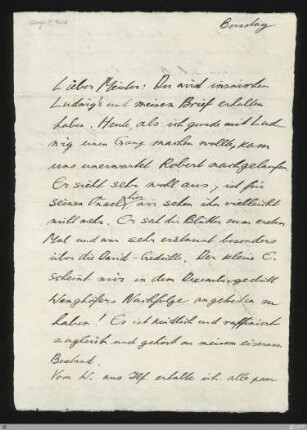 Dienstag
Lieber Meister: Du wirst inzwischen
Ludwig's und meinen Brief erhalten
haben. Heute, als ich gerade mit Lud-
wig einen Gang machen wollte, kam
uns unerwartet Robert nachgelaufen
Er sieht sehr wohl aus, ist für
seinen wir sehn ihn vielleicht
nicht mehr. Er sah die Blätter zum ersten
Mal und war sehr erstaunt besonders
über die David-Gedichte. Der kleine E.
scheint mir in dem Dezembergedicht
Wenghöfers Nachfolge angetreten zu
haben! Es ist kindlich und raffiniert
zugleich und gehört zu meinem eisernen
Bestand.
Vom W. aus erhalte ich alle paar